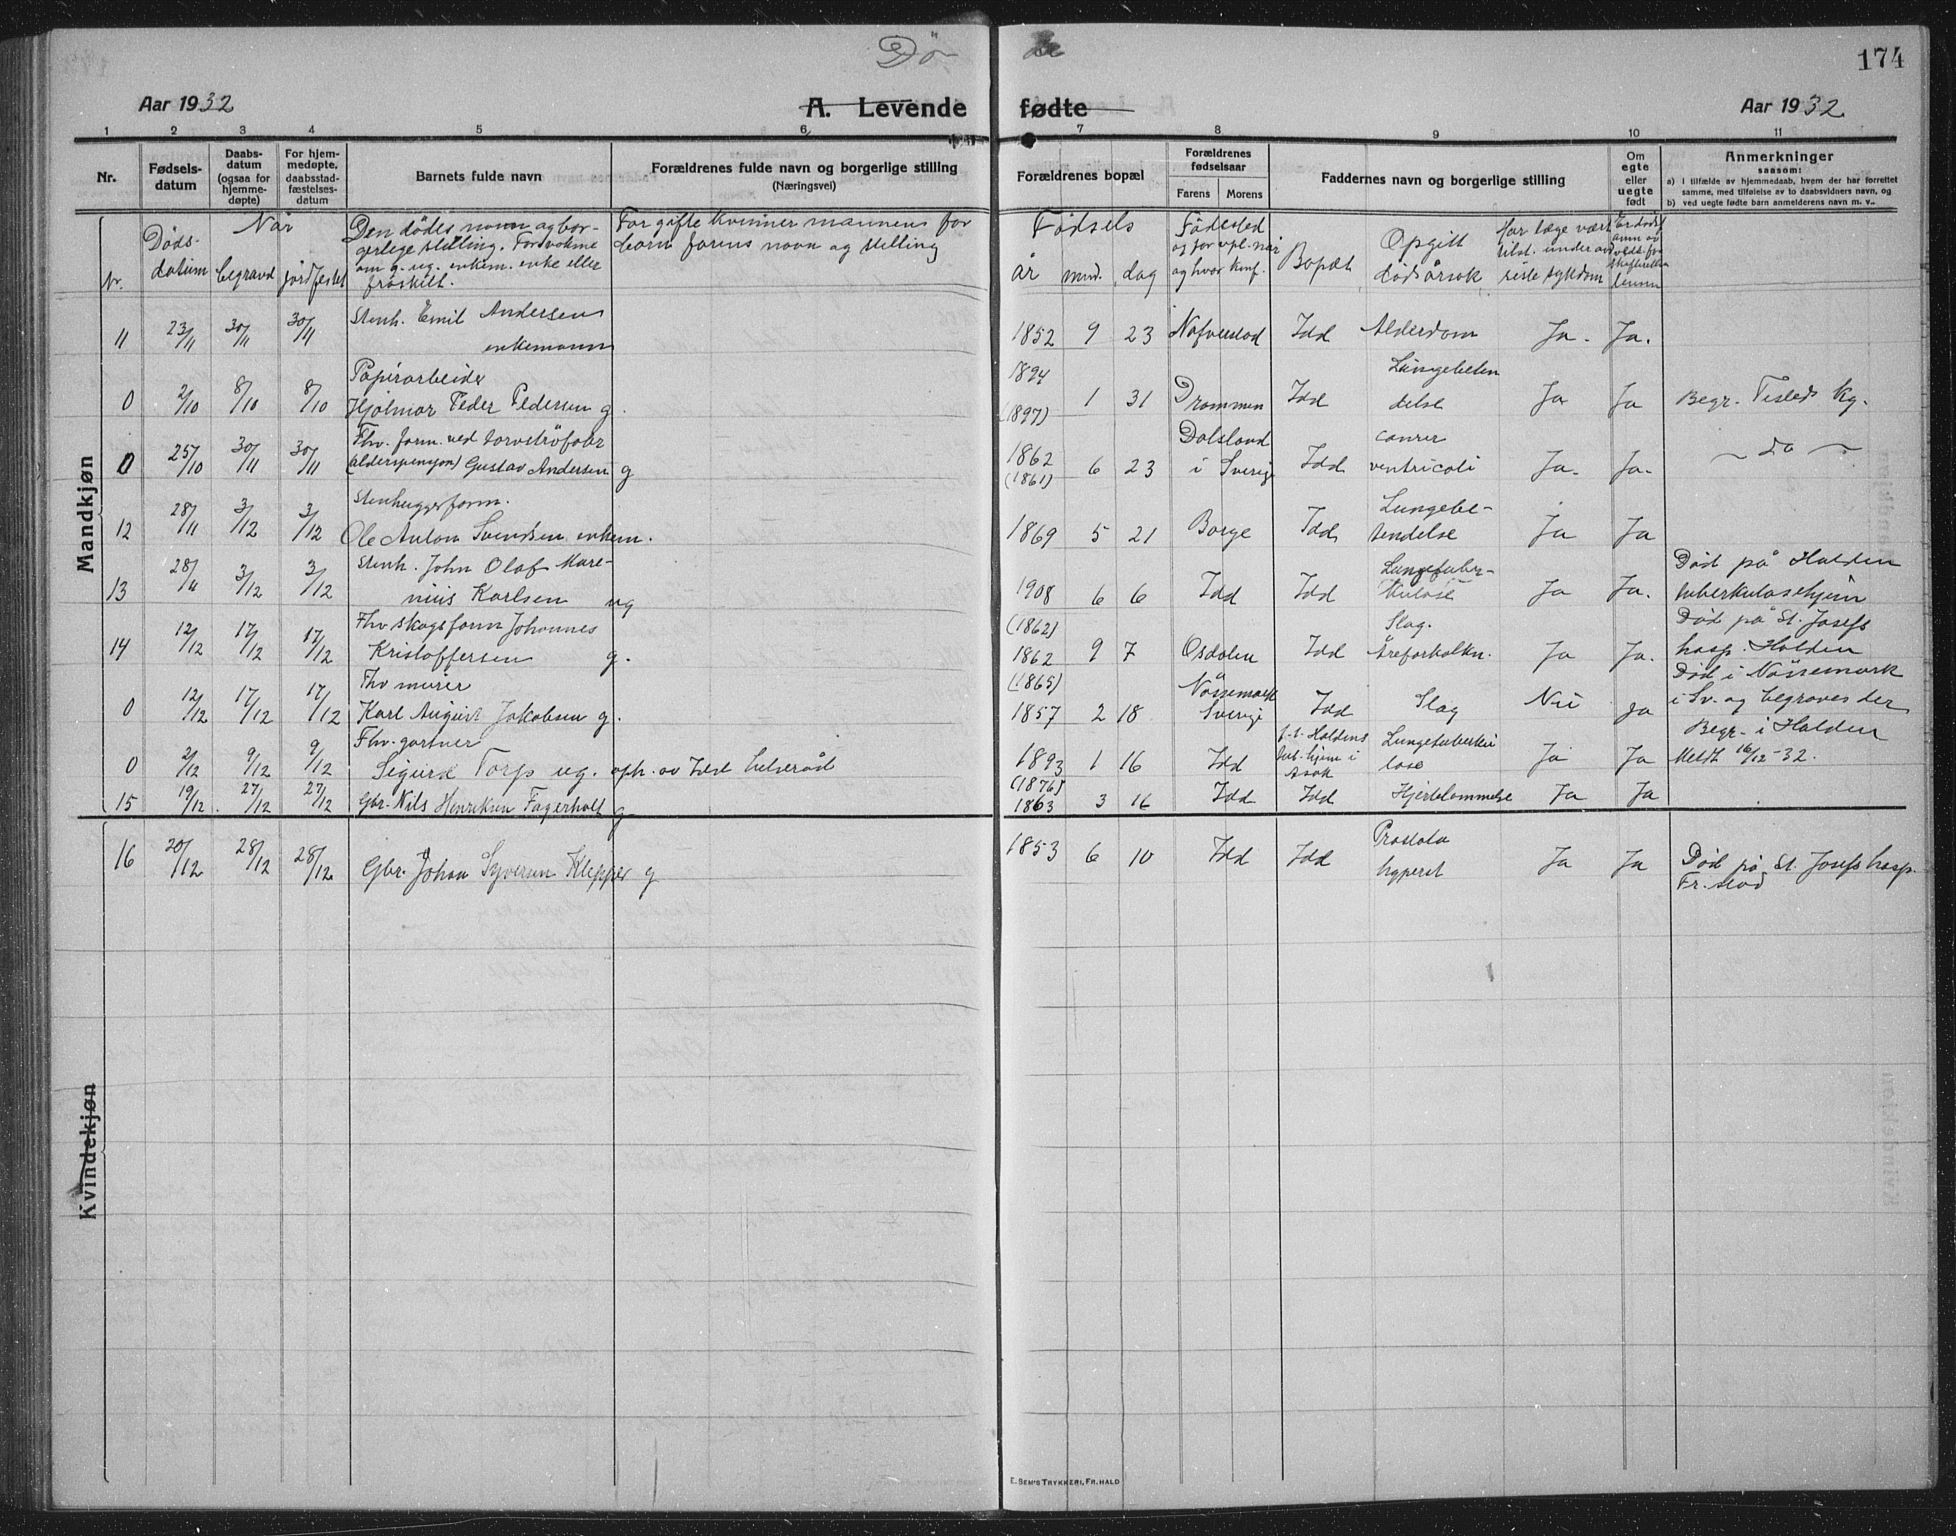 Dö de
174
Aar 1932
A. Levende fødte
Aar 1932
1 2 3 4 5 6 7 8 9 10 11
Nr.
Fødsels-
datum
Daabs-
datum
(ogsaa for
hjemme-
døpte)
For hjem-
medøpte,
daabsstad-
fæstelses-
datum
Barnets fulde navn
Forældrenes fulde navn og borgerlige stilling
(Næringsvei)
Forældrenes bopæl
Forældrenes
fødselsaar
Farens Morens
Faddernes navn og borgerlige stilling
Om
egte
eller
uegte
født
Anmerkninger
saasom:
a) i tilfælde av hjemmedaab, hvem der har forrettet
samme, med tilføielse av to daabsvidners navn, og
b) ved uegte født barn anmelderens navn m. v.,.
Nr.
Døds-
datum
Når
begravd jordfestet
Den dödes navn og bor-
gerlege stilling. For voksne
om g. ug. enkem. enke eller
fraskilt.
For gifte kvinner mannens for
barn farens navn og stilling
Fødsels
år mnd. dag
Födested
og for opl. når
og hvor konf.
Bopæl
Opgitt
dödsårsak
Har læge vært
tilst. under
siste sykdom
Mandkjøn
11 23/11 30/11 30/11 Stenh. Emil Andersen
enkemann
1852 9 23 Idd Alderdom Ja. Ja.
0 2/10 8/10 8/10 Papirarbeider
Hjalmar Peder Pedersen g.
1894
(1897) 1 31 Drammen Idd Lungebeten
delse Ja Ja Begr. Tisleds kg.
0 25/10 30/11 30/11 Fhv. form. ved torvströfabr
(alderspensjon) Gustav Andersen g
1862
(1861) 6 23 Dalsland
i Sverig Idd cancer
ventricoli Ja. Ja. do
12 28/11 3/12 3/12 Stenhuggerform.
Ole Anton Svendsen enkem.
1869 5 21 Borge Idd Lungebe-
tendelse Ja Ja
13 28/11 3/12 3/12 Stenh. John Olaf Mare-
nius Karlsen ug
1908 6 6 Idd Idd Lungetuber-
kulose Ja Ja. Död på Halden
tuberkulosehjem
14 12/12 17/12 17/12 Fhv skogsform Johannes
Kristoffersen g.
(1862)
1862 9 7 Osdalen Idd Slag.
Åreforkalkn. Ja Ja. Död på St. Josefs
hosp. Halden
0 12/12 17/12 17/12 Fhv murer
Karl August Jakobsen g.
(1865)
1857 2 18 Nössemark
Sverige Idd Slag Nei Ja Död i Nössemark
i Sv. og begraves der
0 2/12 9/12 9/12 Fhv. gartner
Sigurd Torp ug. oph. av Idd helseråd
1893 1 16 Idd Haldens
tub. hjem i
Asak Lungetuberku
lose Ja Ja Begr. i Halden
Meldt 16/12-32.
15 19/12 27/12 27/12 Gbr. Nils Henriksen Fagerholt g
(1876)
1863 3 16 Idd Idd Hjertelammelse Ja Ja
16 20/12 28/12 28/12 Gbr. Johan Syversen Klepper g
1853 6 10 Idd Idd Prostata
hypert Ja Ja Död på St. Josefs hosp.
Fr.stad
Kvindekjøn
E. Sem's Trykkeri, Fr.hald